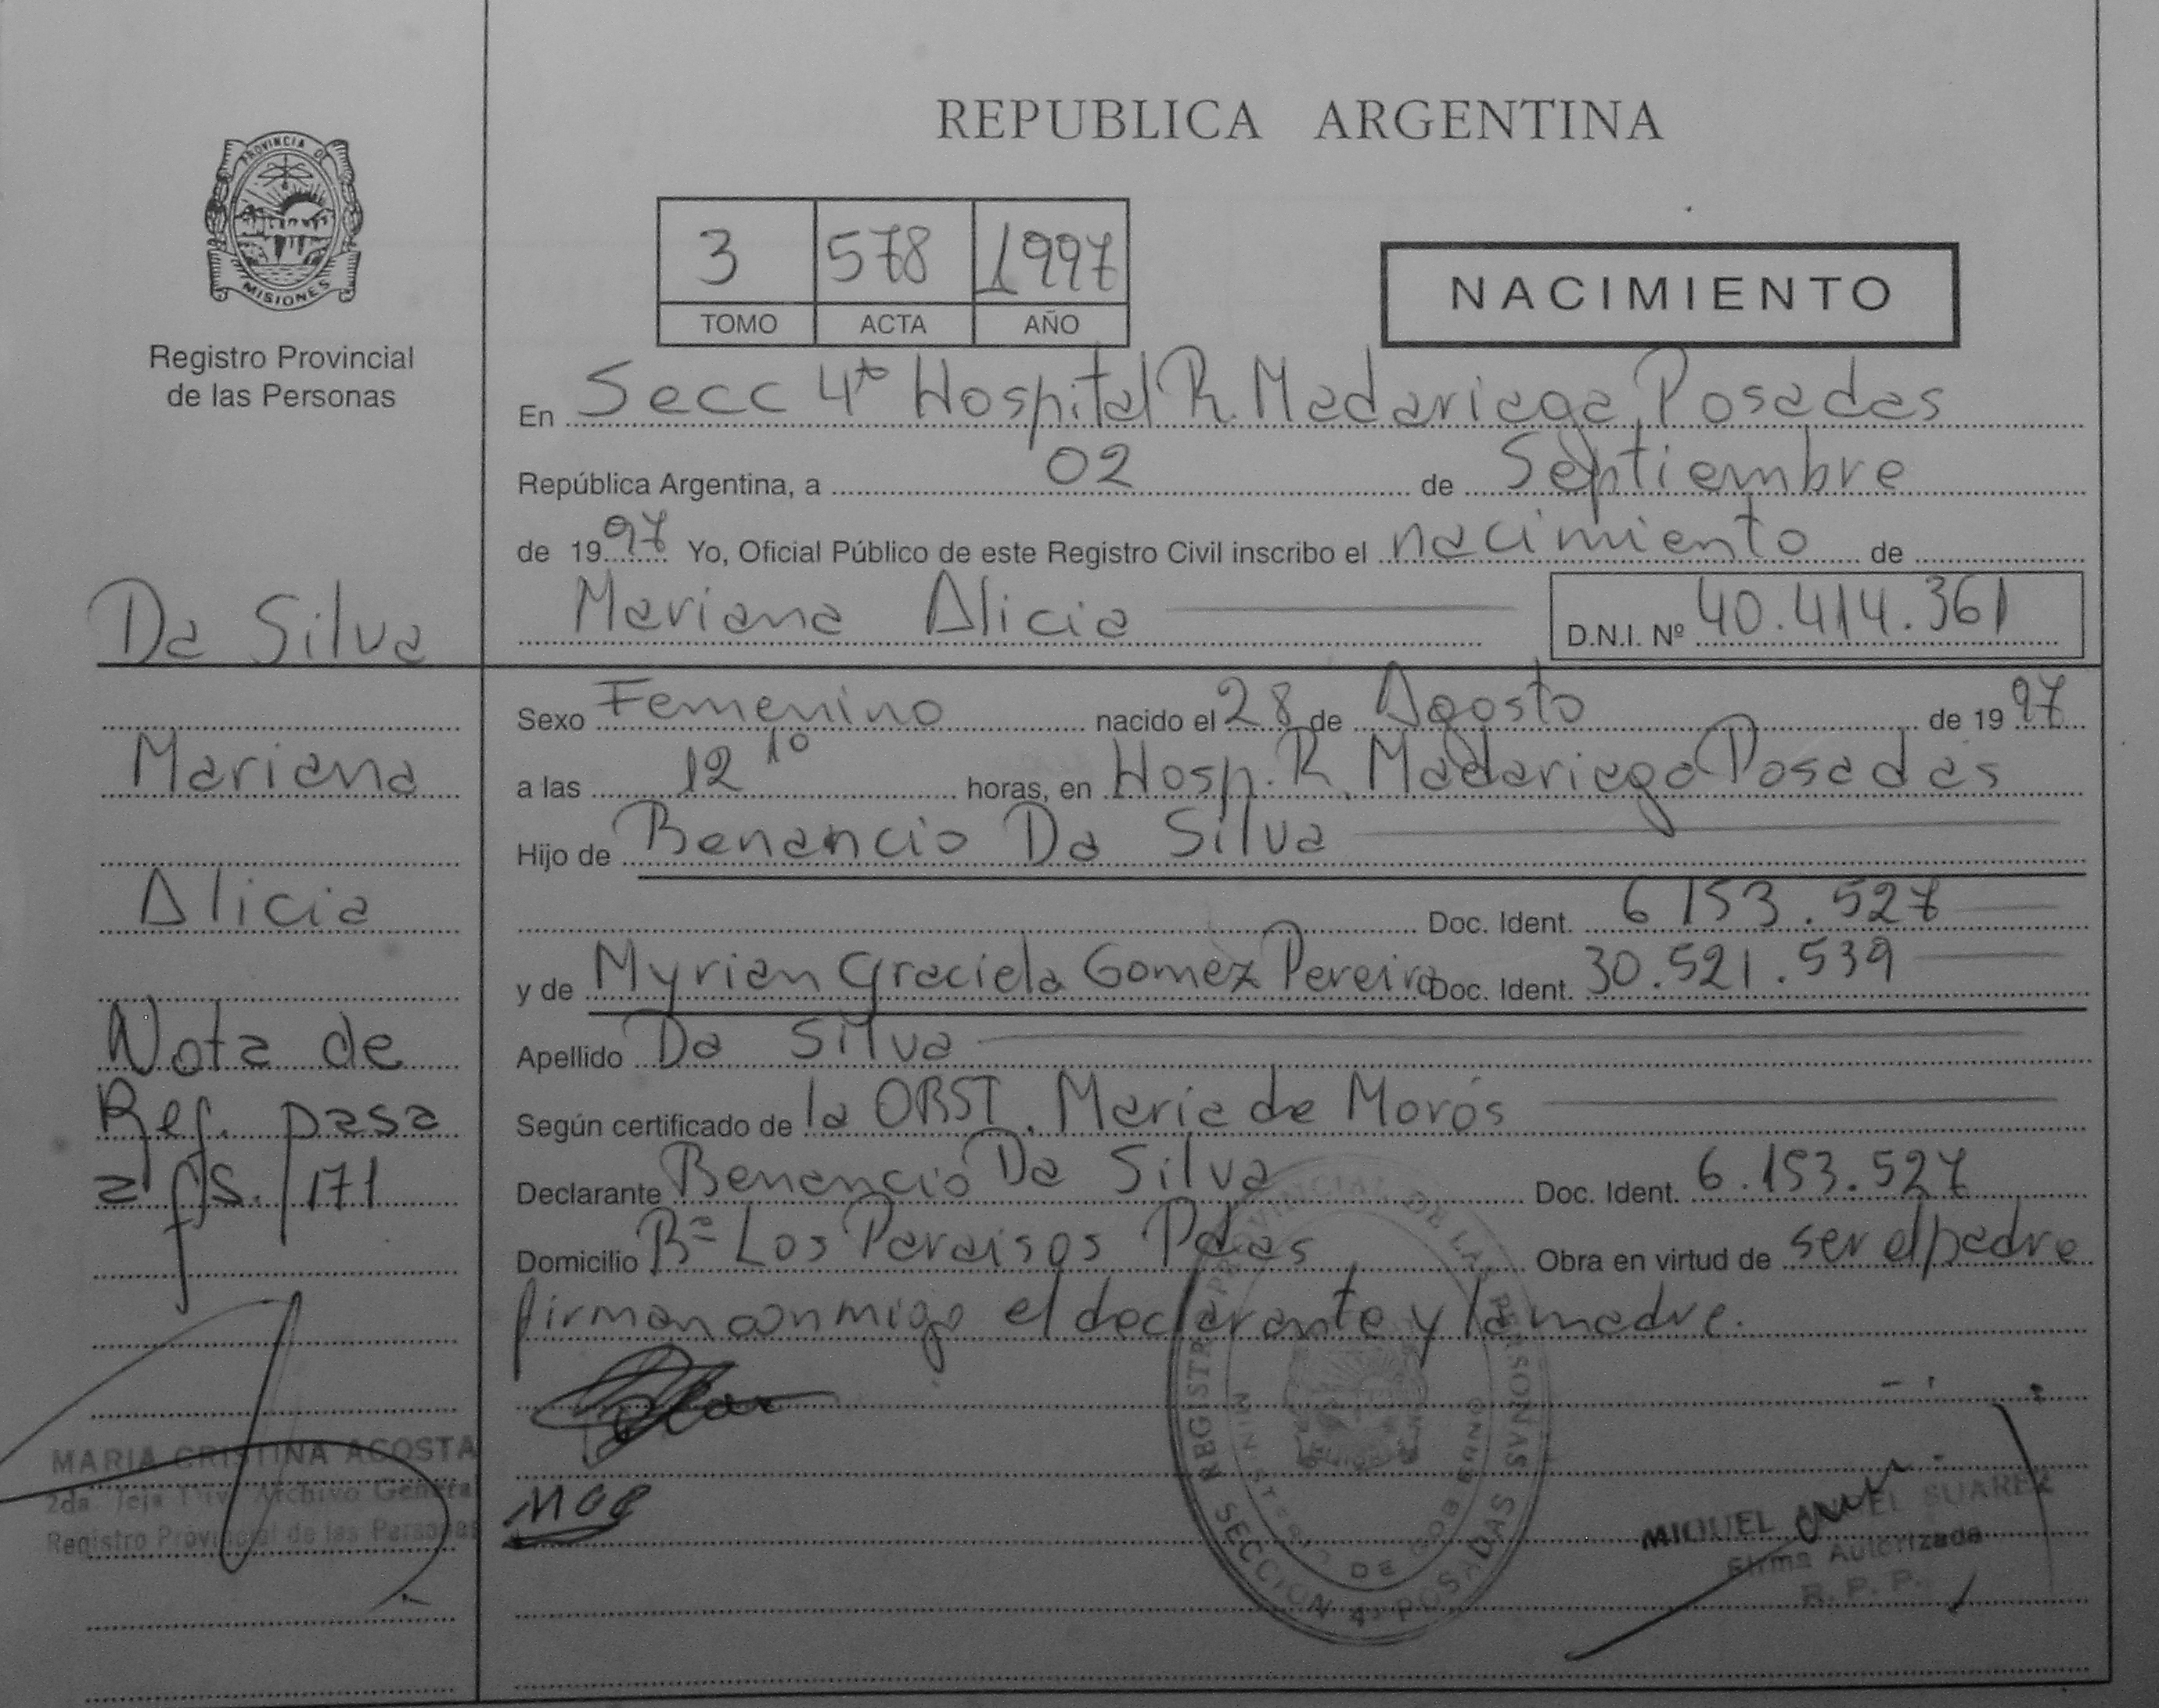 REPUBLICA ARGENTINA
PROVINCIA DE
MISIONES
Registro Provincial
de las Personas
3 578 1997
TOMO ACTA AÑO
NACIMIENTO
En Secc 4ta Hospital R. Madariaga Posadas
República Argentina, a 02 de Septiembre
de 1997 Yo, Oficial Público de este Registro Civil inscribo el nacimiento de
Mariana Alicia D.N.I. Nº 40.414.361
Da Silva
Mariana
Alicia
Nota de
Ref. pasa
a fs. 171
MARIA CRISTINA ACOSTA
2da. Jefa Div. Archivo General
Registro Provincial de las Personas
Sexo Femenino nacido el 28 de Agosto de 1997
a las 12 10 horas, en Hosp. R. Madariaga Posadas
Hijo de Benancio Da Silva
Doc. Ident. 6153.527
y de Myrian Graciela Gomez Pereira Doc. Ident. 30.521.539
Apellido Da Silva
Según certificado de la OBST. Maria de Morós
Declarante Benancio Da Silva Doc. Ident. 6.153.527
Domicilio Bº Los Paraisos Pdas Obra en virtud de ser el padre
firman conmigo el declarante y la madre.
MGP
REGISTRO PROVINCIAL DE LAS PERSONAS
MINISTERIO DE GOBIERNO
SECCION 4ª POSADAS
MIGUEL ANGEL SUAREZ
Firma Autorizada
R. P. P.